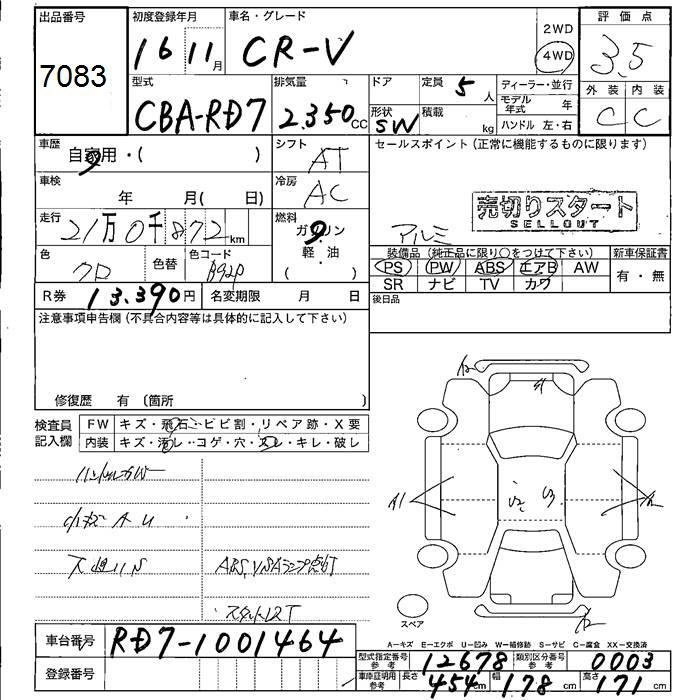 出品番号 初度登録年月 車名・グレード 2WD 評価点
7083 16 11月 CR-V 4WD 3.5
型式 排気量 ドア 定員 5人 ディーラー・並行 外装 内装
CBA-RD7 2.350cc 形状 SW 積載 kg モデル年式 年 C C
ハンドル 左・右
車歴 自家用・( ) シフト AT セールスポイント(正常に機能するものに限ります)
車検 年 月( 日) 冷房 AC
売切りスタート
SELLOUT
走行 21万0千872km 燃料 ガソリン・軽油 ( ) アルミ
色 クロ 色替 色コード B92P
装備品(純正品に限り○をつけて下さい) 新車保証書
PS PW ABS エアB AW 有・無
SR ナビ TV カワ
R券 13.390円 名変期限 月 日 後日品
注意事項申告欄(不具合内容等は具体的に記入して下さい)
修復歴 有 〔箇所 〕
検査員記入欄 FW キズ・飛石・ヒビ割・リペア跡・X要
内装 キズ・汚レ・コゲ・穴・スレ・キレ・破レ
A1
ABS,VSAランプ点灯
スペア
A-キズ E-エクボ U-凹み W-補修跡 S-サビ C-腐食 XX-交換済
車台番号 RD7-1001464
型式指定番号 参考 12678 類別区分番号 参考 0003
登録番号 車庫証明用 参考 長さ 454cm 幅 178cm 高さ 171cm